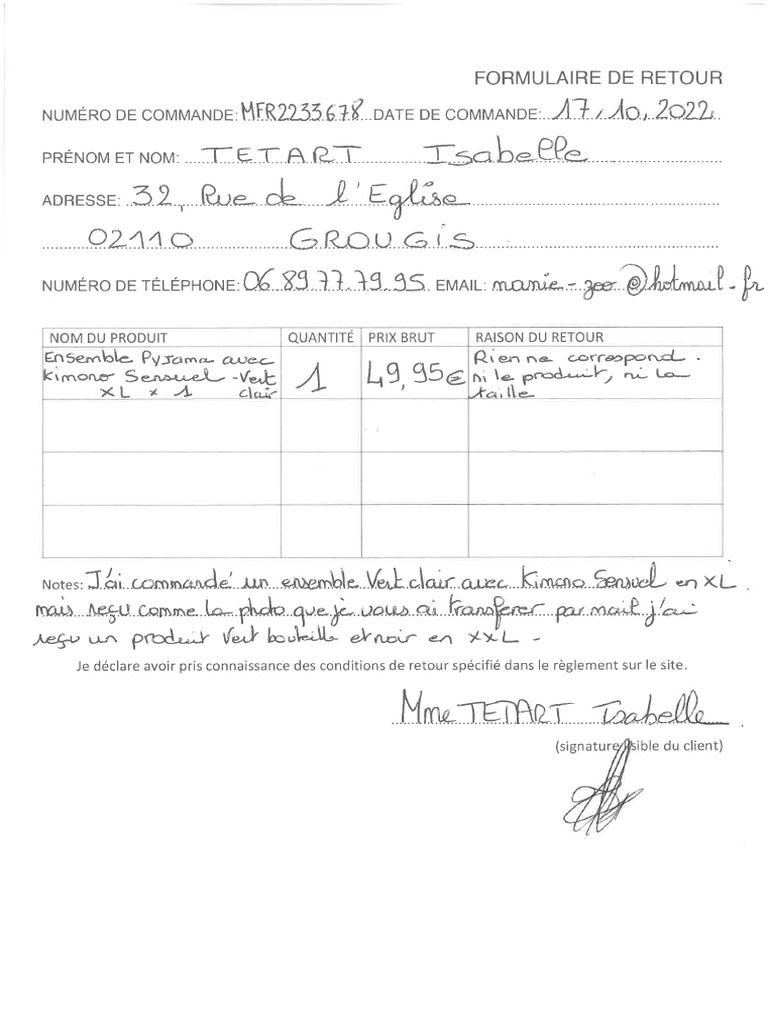 FORMULAIRE DE RETOUR
NUMÉRO DE COMMANDE: MFR2233678 DATE DE COMMANDE: 17/10.2022
PRÉNOM ET NOM: TETART Isabelle
ADRESSE: 32, Rue de l'Eglise
02110 GROUGIS
NUMÉRO DE TÉLÉPHONE: 06.89.77.79.95 EMAIL: manie-zoo@hotmail.fr
NOM DU PRODUIT QUANTITÉ PRIX BRUT RAISON DU RETOUR
Ensemble Pyjama avec
Kimono Sensuel - Vert
XL x 1 clair
1
49,95€
Rien ne correspond.
ni le produit, ni la
taille
Notes: J'ai commandé un ensemble Vert clair avec Kimono Sensuel en XL
mais reçu comme la photo que je vous ai transferer par mail j'ai
reçu un produit Vert bouteille et noir en XXL -
Je déclare avoir pris connaissance des conditions de retour spécifié dans le règlement sur le site.
Mme TETART Isabelle
(signature lisible du client)